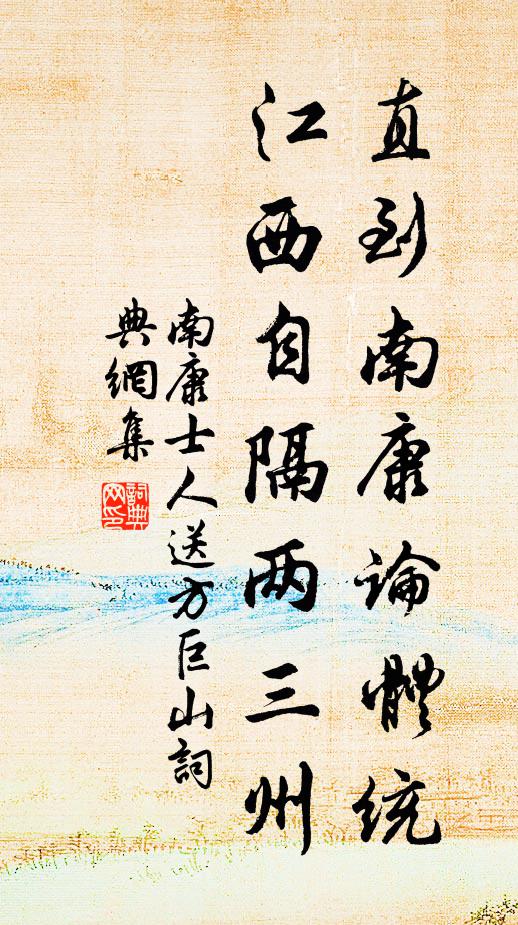 直到南康論體統
江西自隔两三州
南康士人送方巨山詞
典網集
詞典
网印